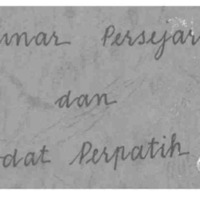 unar Persejar
dan
dat Perpatih